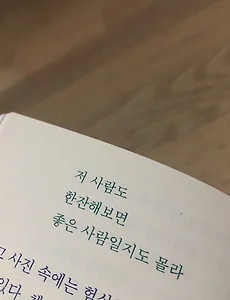 저 사람도
한잔해보면
좋은 사람일지도 몰라
그 사진 속에는 험상
있다.